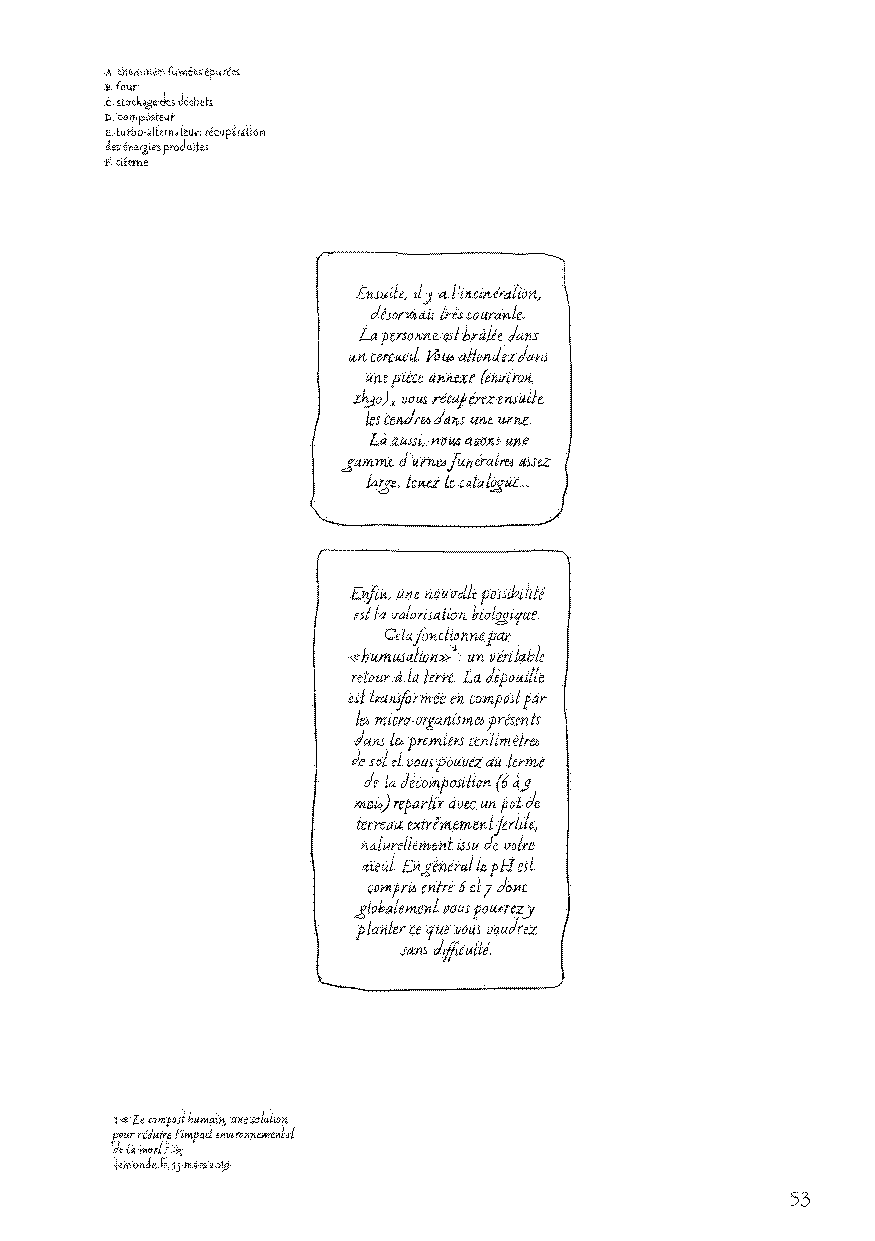 A. cheminée: fumées épurées
B. four
C. stockage des déchets
D. composteur
E. turbo-alternateur: récupération
des énergies produites
F. citerne
Ensuite, il y a l'incinération,
désormais très courante.
La personne est brûlée dans
un cercueil. Vous attendez dans
une pièce annexe (environ
1h30), vous récupérez ensuite
les cendres dans une urne.
Là aussi, nous avons une
gamme d'urnes funéraires assez
large, tenez le catalogue...
Enfin, une nouvelle possibilité
est la valorisation biologique.
Cela fonctionne par
«humusation»¹: un véritable
retour à la terre. La dépouille
est transformée en compost par
les micro-organismes présents
dans les premiers centimètres
de sol et vous pouvez au terme
de la décomposition (6 à 9
mois) repartir avec un pot de
terreau extrêmement fertile,
naturellement issu de votre
aïeul. En général le pH est
compris entre 6 et 7 donc
globalement vous pourrez y
planter ce que vous voudrez
sans difficulté.
1 « Le compost humain, une solution
pour réduire l'impact environnemental
de la mort ? »,
lemonde.fr, mars
53